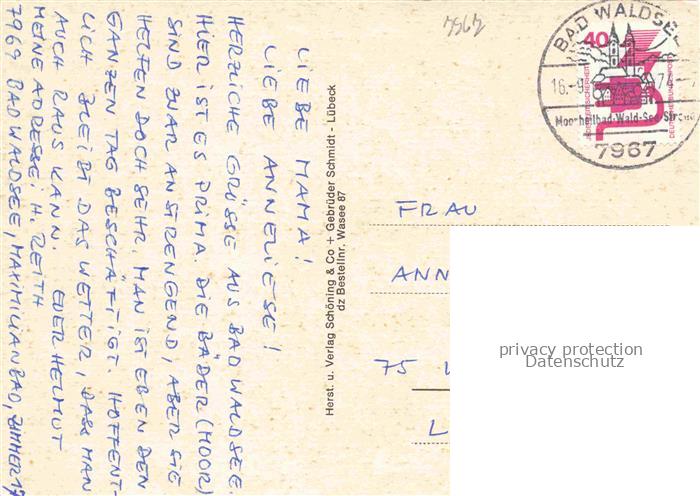 LIEBE MAMA!
LIEBE ANNELIESE!
HERZLICHE GRÜSSE AUS BAD WALDSEE.
HIER IST ES PRIMA. DIE BÄDER (MOOR)
SIND ZWAR ANSTRENGEND, ABER SIE
HELFEN DOCH SEHR. MAN IST EBEN DEN
GANZEN TAG BESCHÄFTIGT. HOFFENT-
LICH BLEIBT DAS WETTER, DASS MAN
AUCH RAUS KANN. EUER HELMUT
MEINE ADRESSE: H. REITH
7969 BAD WALDSEE, MAXIMILIANBAD, ZIMMER 17
Herst. u. Verlag Schöning & Co + Gebrüder Schmidt - Lübeck
dz Bestellnr. Wasee 87
7967
BAD WALDSEE
40
16.-9. 74
Moorheilbad-Wald-See-Strand
7967
FRAU
ANN
75
L
privacy protection
Datenschutz